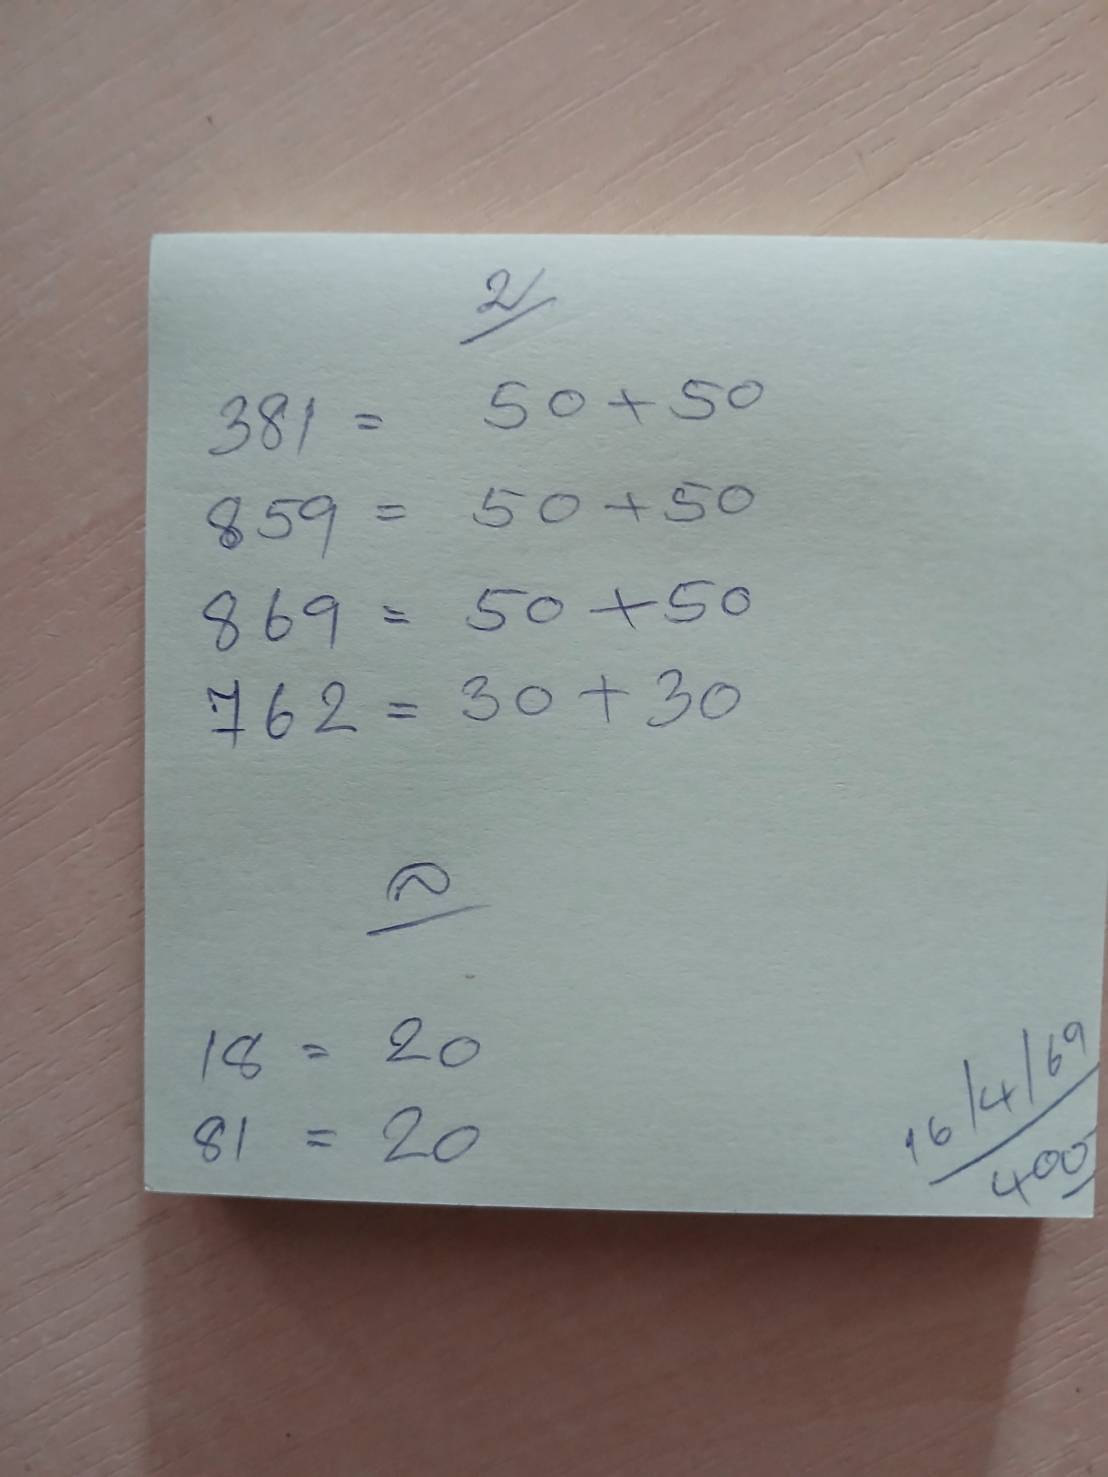 2/
381 = 50+50
859 = 50+50
869 = 50+50
762 = 30+30
ล
18 = 20
81 = 20
16/4/69
400